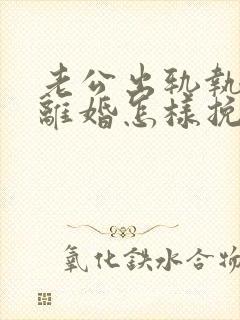 老公出轨執
離婚怎樣挽
氧化鉄水合物